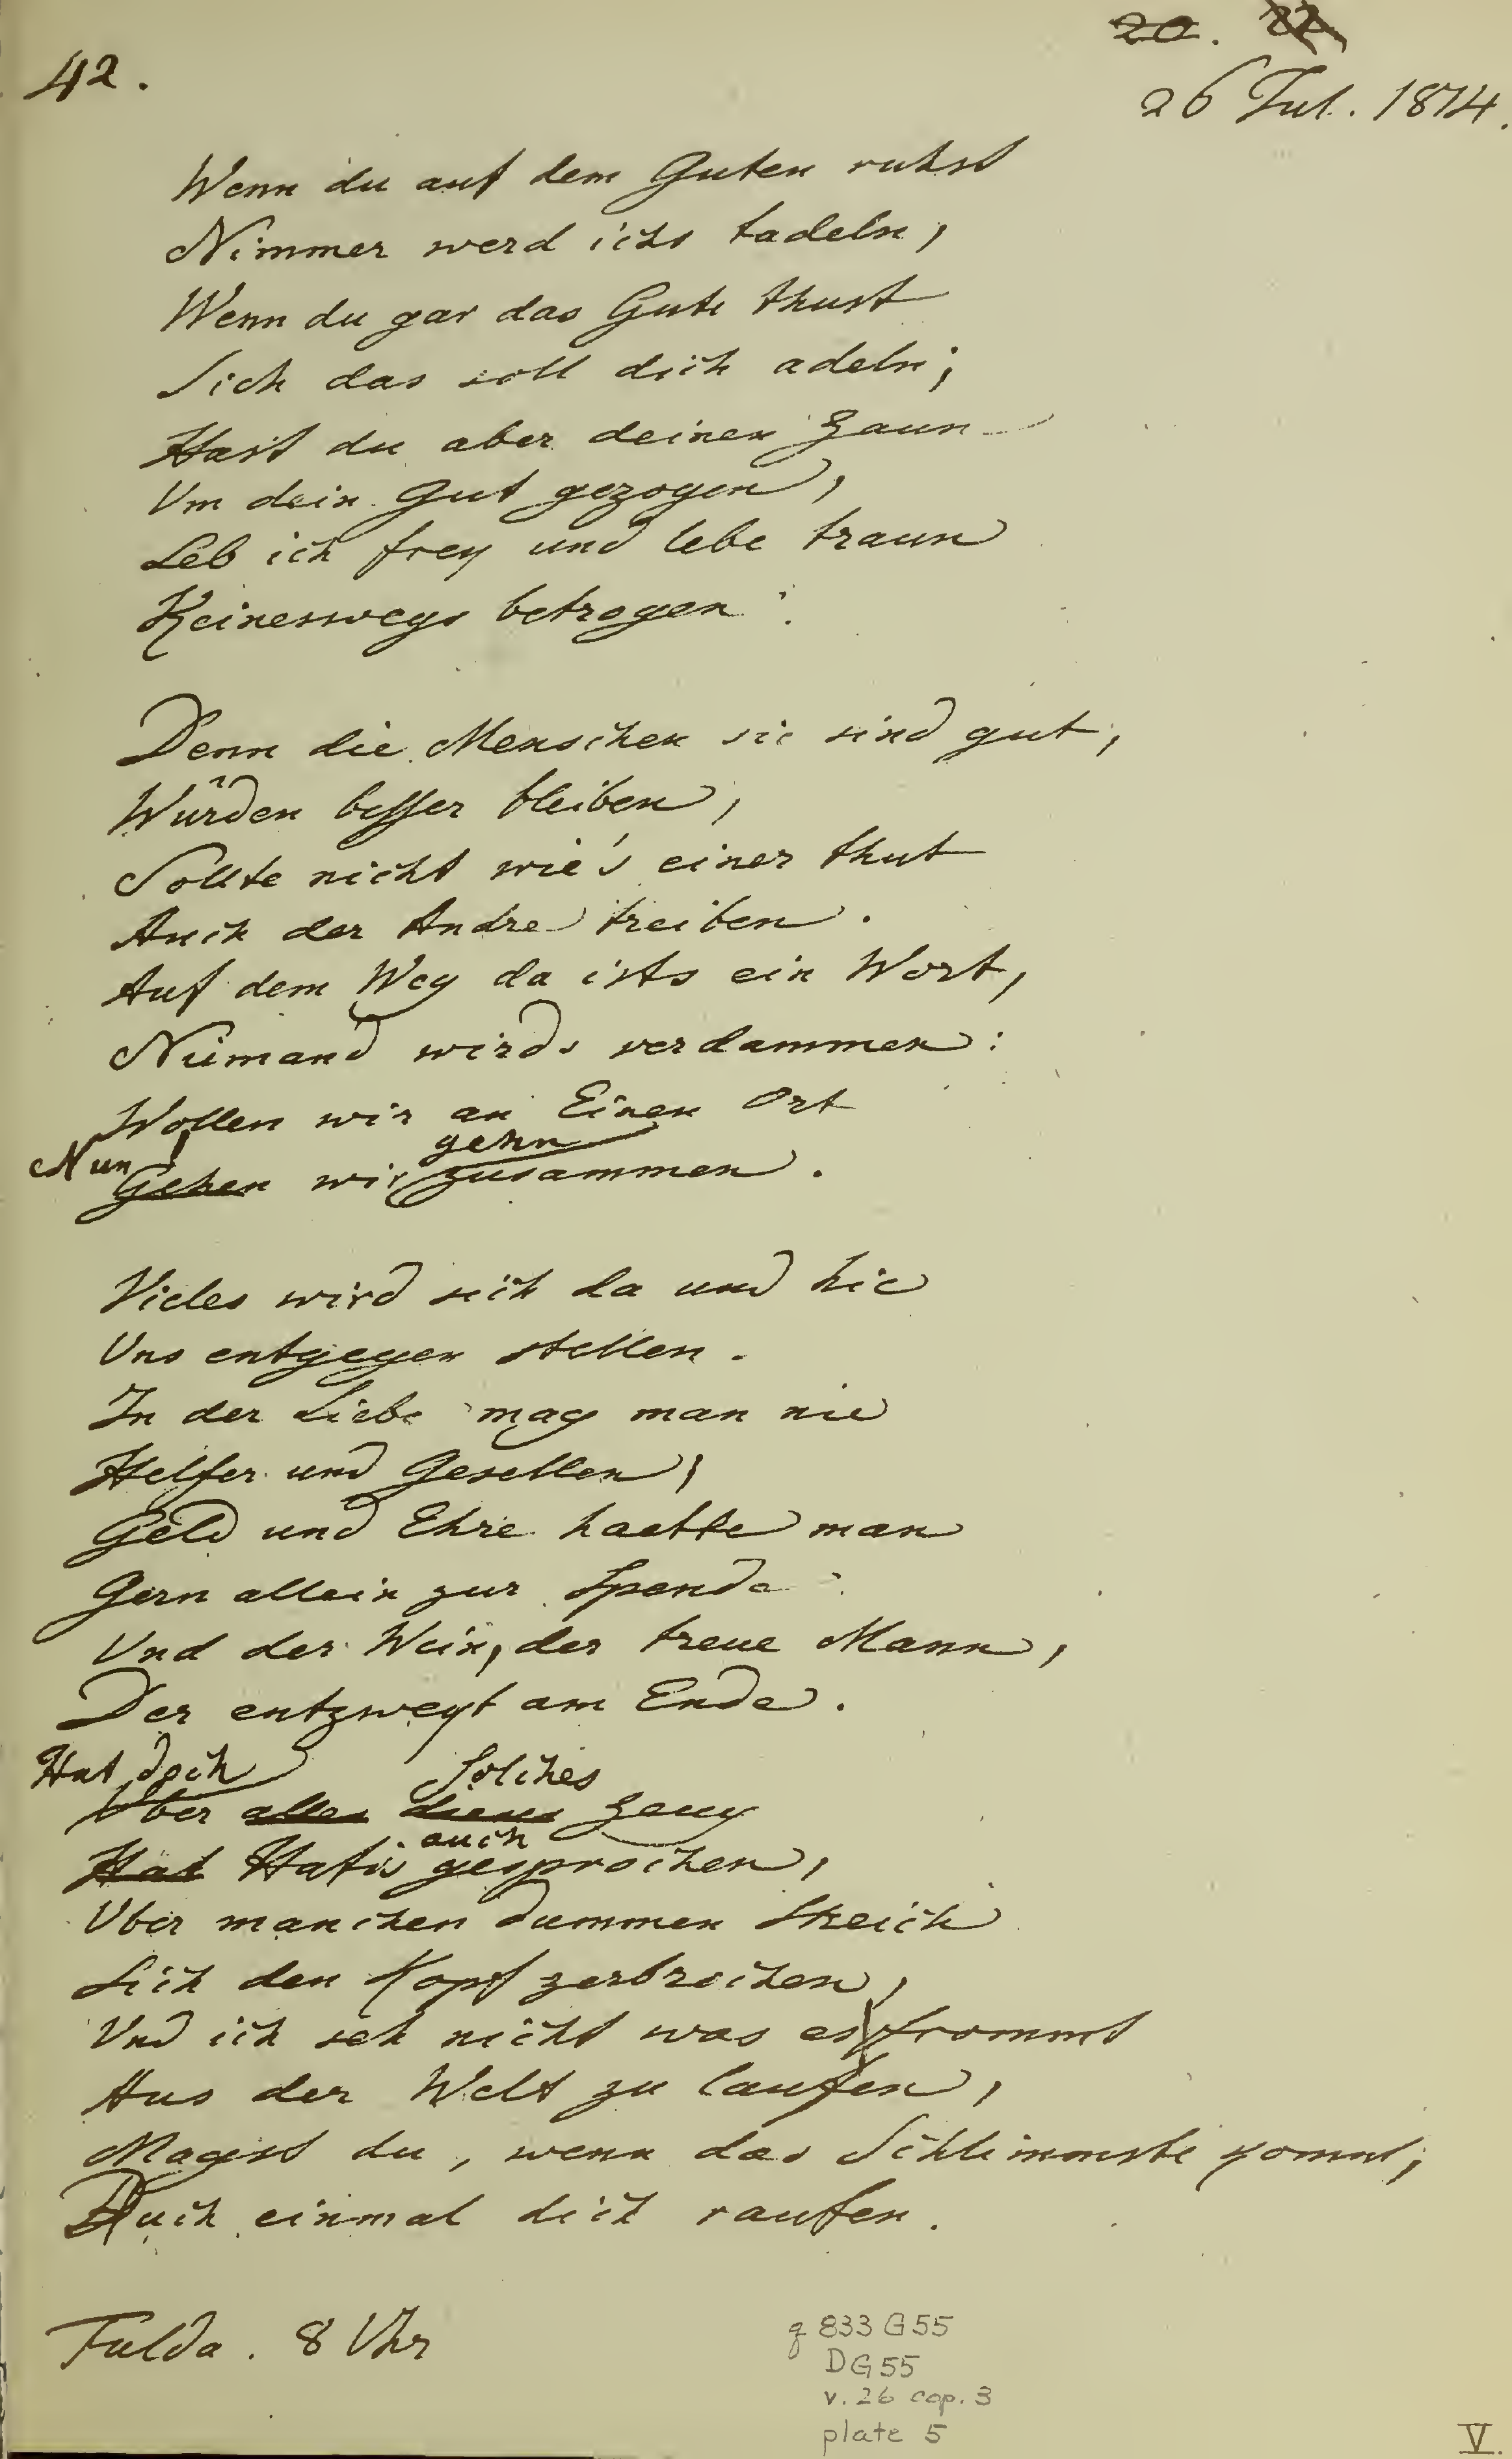 20. 22
42.
26 Jul. 1814.
Wenn du auf dem Guten ruhst
Nimmer werd ichs tadeln,
Wenn du gar das Gute thust
Sieh das soll dich adeln;
Hast du aber deinen Zaun
Um dein Gut gezogen,
Leb ich frey und lebe traun
Keineswegs betrogen:
Denn die Menschen sie sind gut,
Würden besser bleiben,
Sollte nicht wie's einer thut
Auch der Andre treiben.
Auf dem Weg da ists ein Wort,
Niemand wirds verdammen:
Wollen wir an Einen Ort
Nun! gehn
Gehen wir zusammen.
Vieles wird sich da und hie
Uns entgegen stellen.
In der Liebe mag man nie
Helfer und Gesellen,
Geld und Ehre haette man
Gern allein zur Spende:
Und der Wein, der treue Mann,
Der entzweyt am Ende.
Hat doch Solches
Über alles dieses Zeug
auch
Hat Hafis gesprochen,
Über manchen dummen Streich
Sich den Kopf zerbrochen,
Und ich seh nicht was es frommt
Aus der Welt zu laufen,
Magst du, wenn das Schlimmste kommt,
Auch einmal dich raufen.
Fulda. 8 Uhr
q 833 G55
DG55
v. 26 cop. 3
plate 5
V.